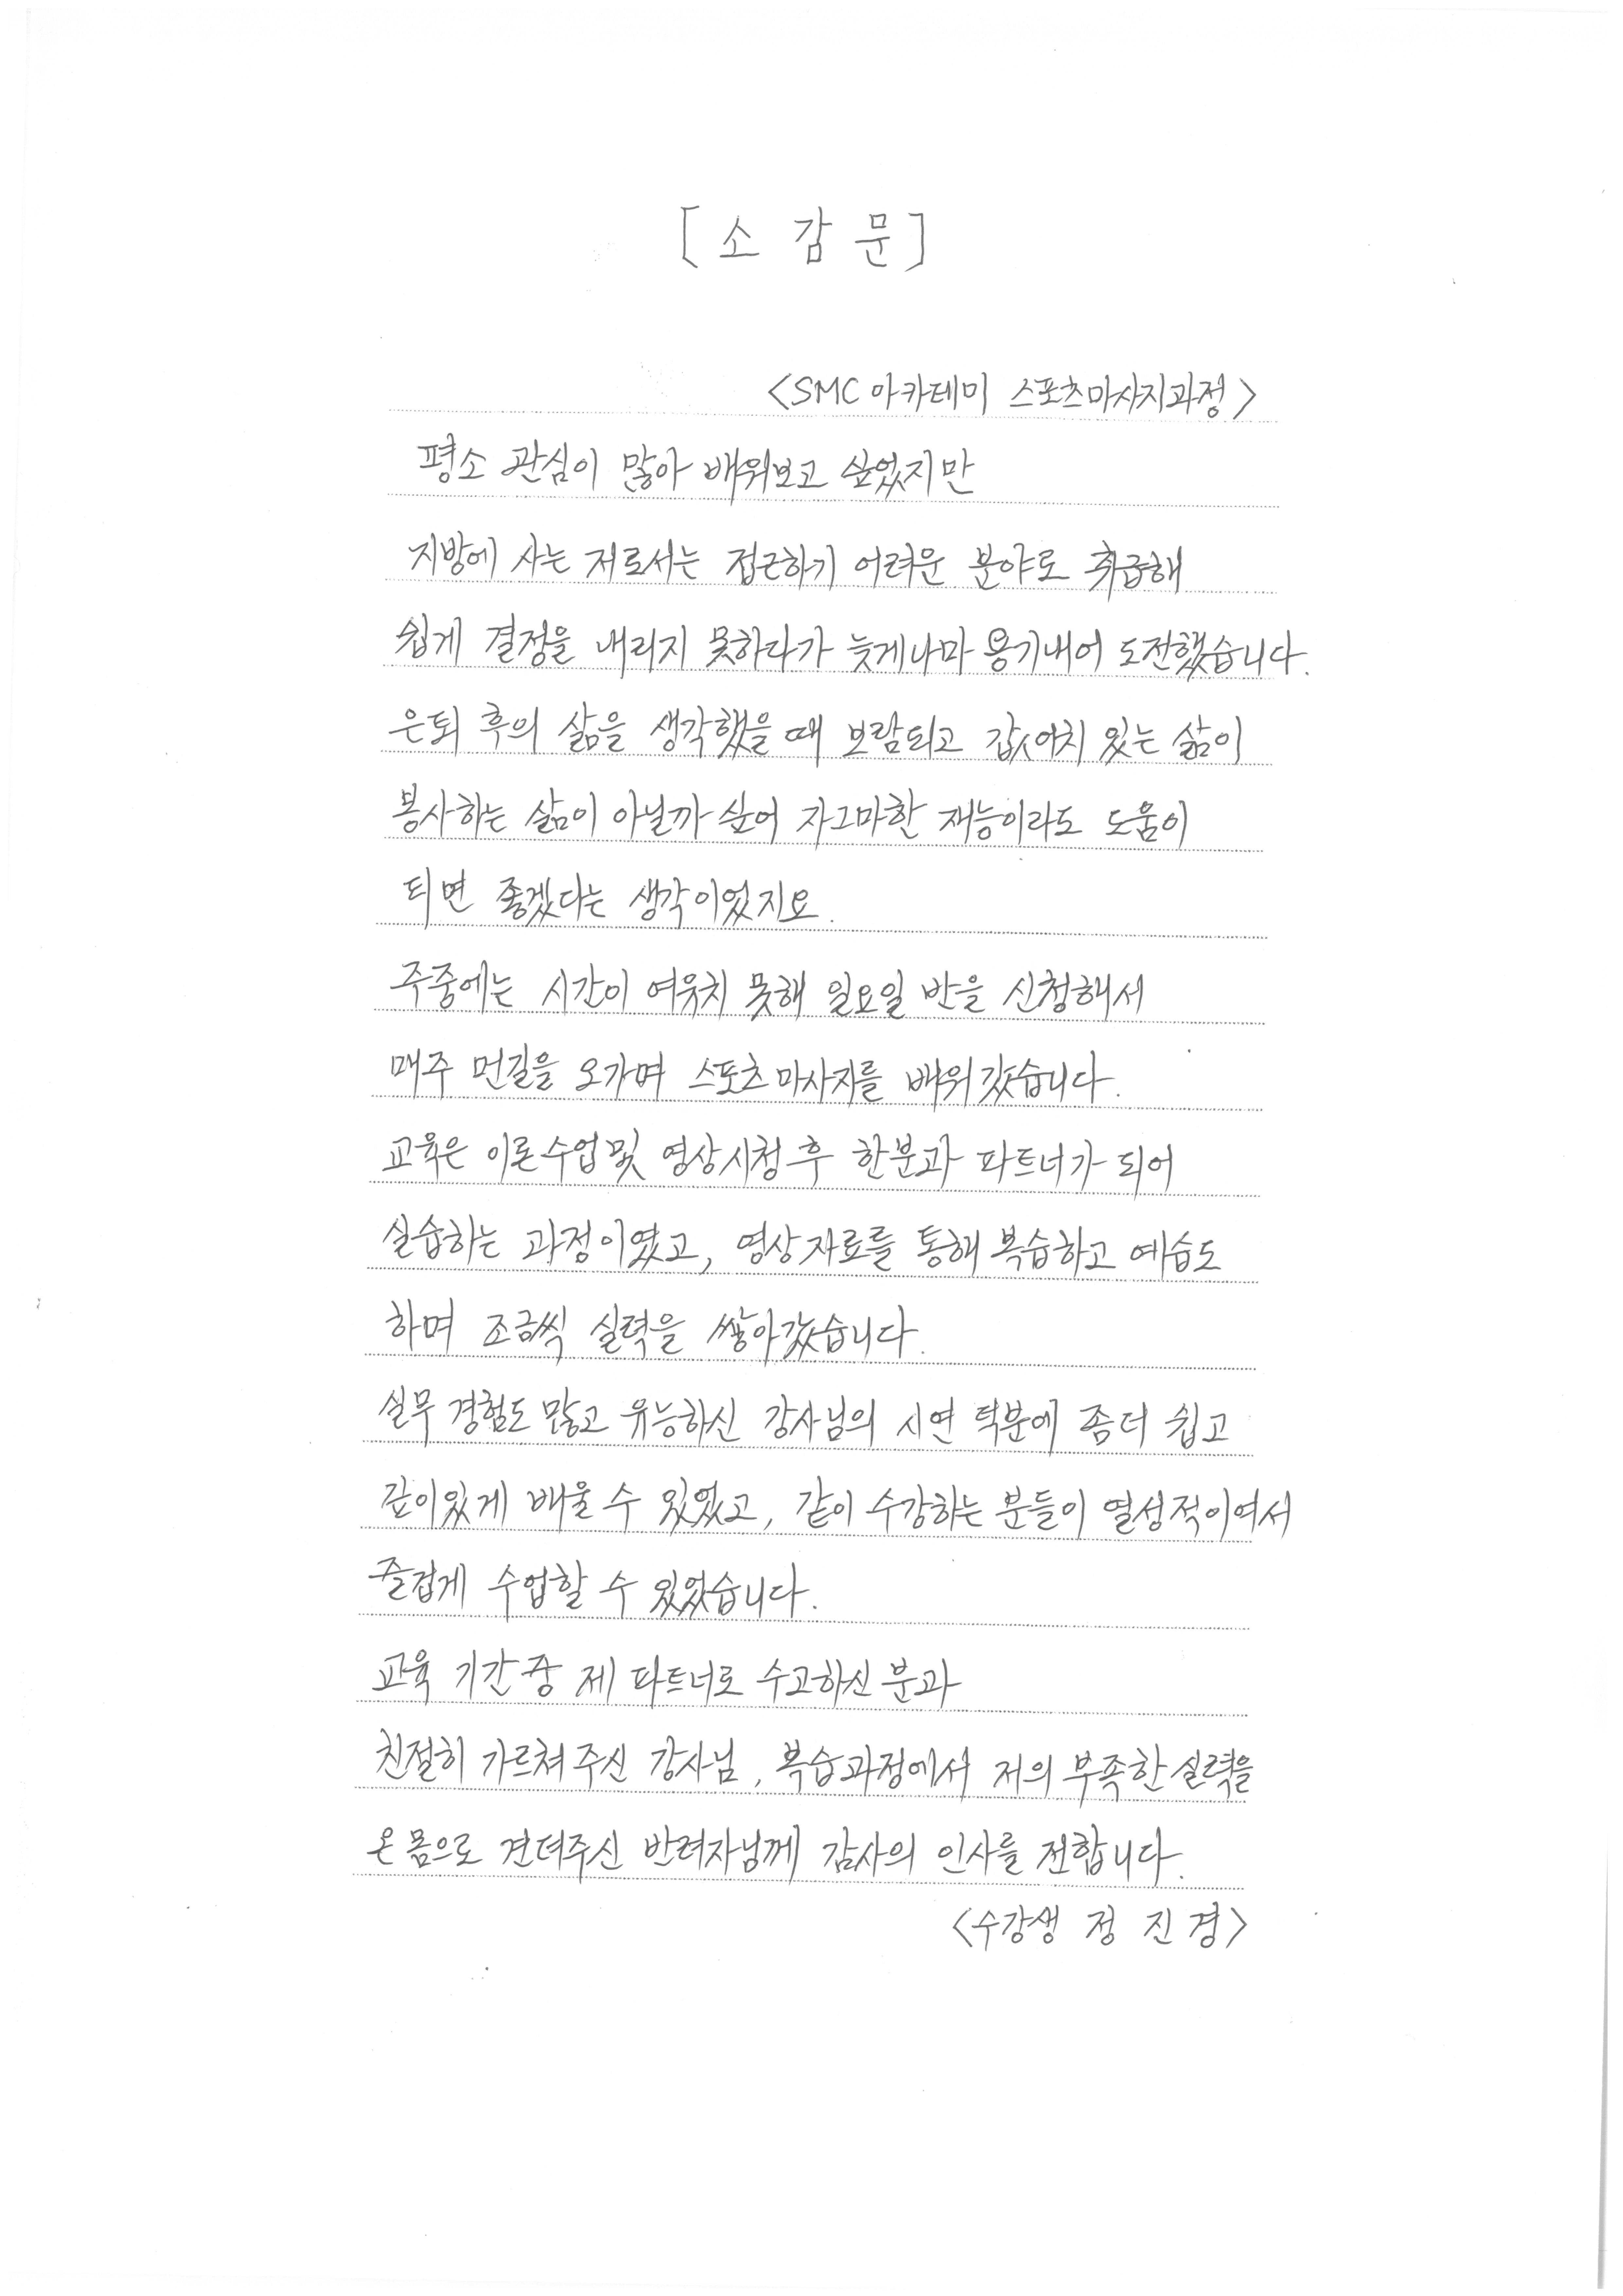 [소 감 문]
<SMC 아카데미 스포츠마사지과정>
평소 관심이 많아 배워보고 싶었지만
지방에 사는 저로서는 접근하기 어려운 분야로 취급해
쉽게 결정을 내리지 못하다가 늦게나마 용기내어 도전했습니다.
은퇴 후의 삶을 생각했을 때 보람되고 값어치 있는 삶이
봉사하는 삶이 아닐까 싶어 자그마한 재능이라도 도움이
되면 좋겠다는 생각이었지요.
주중에는 시간이 여유치 못해 일요일 반을 신청해서
매주 먼길을 오가며 스포츠 마사지를 배워갔습니다.
교육은 이론수업 및 영상시청 후 한분과 파트너가 되어
실습하는 과정이였고, 영상자료를 통해 복습하고 예습도
하며 조금씩 실력을 쌓아갔습니다.
실무 경험도 많고 유능하신 강사님의 시연 덕분에 좀더 쉽고
깊이있게 배울 수 있었고, 같이 수강하는 분들이 열성적이여서
즐겁게 수업할 수 있었습니다.
교육 기간 중 제 파트너로 수고하신 분과
친절히 가르쳐 주신 강사님, 복습과정에서 저의 부족한 실력을
온 몸으로 견뎌주신 반려자님께 감사의 인사를 전합니다.
<수강생 정 진 경>